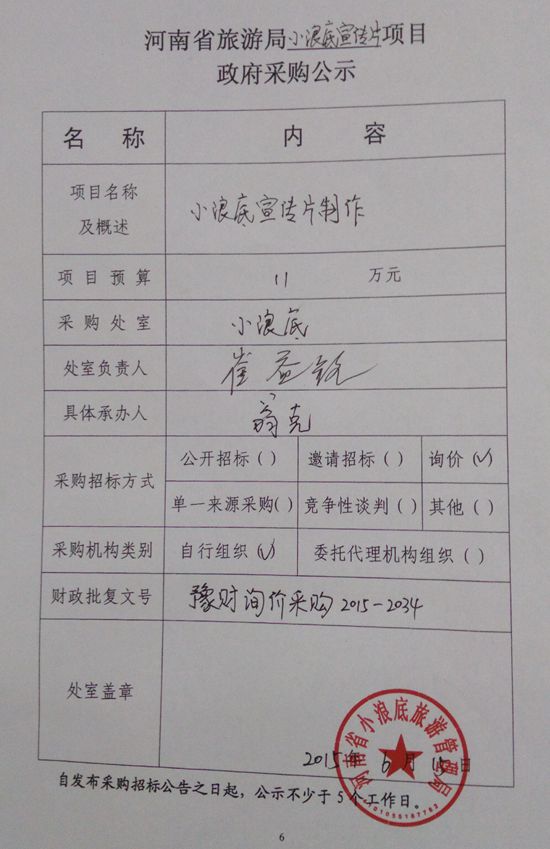 河南省旅游局小浪底宣传片项目
政府采购公示
名 称 内 容
项目名称
及概述
小浪底宣传片制作
项目预算 11 万元
采购处室 小浪底
处室负责人 崔益
具体承办人 翁克
采购招标方式 公开招标( ) 邀请招标( ) 询价(√)
单一来源采购( ) 竞争性谈判( ) 其他( )
采购机构类别 自行组织(√) 委托代理机构组织( )
财政批复文号 豫财询价采购2015-2034
处室盖章
河南省小浪底旅游管理局
2015年 6 月 15日
自发布采购招标公告之日起，公示不少于5个工作日。
6